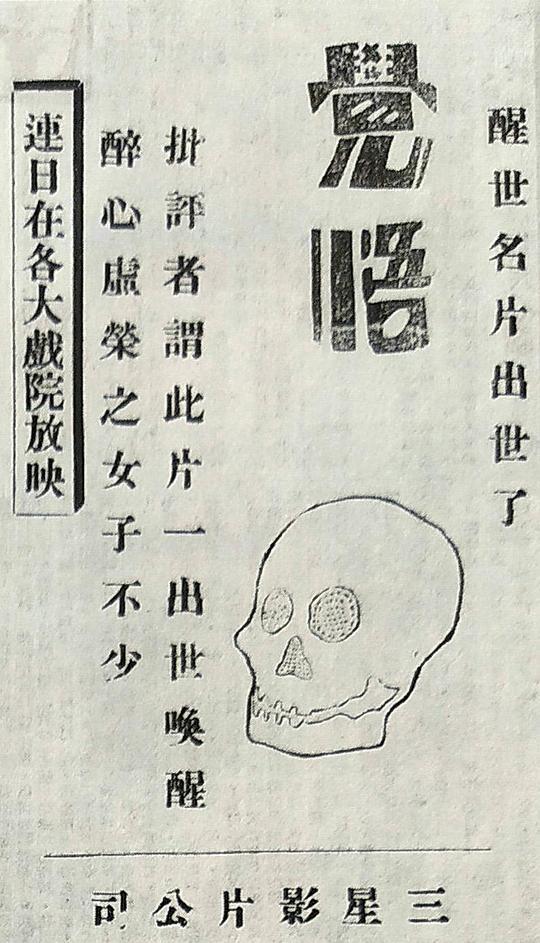 醒世名片出世了
覺悟
批評者謂此片一出世喚醒
醉心虛榮之女子不少
連日在各大戲院放映
三星影片公司